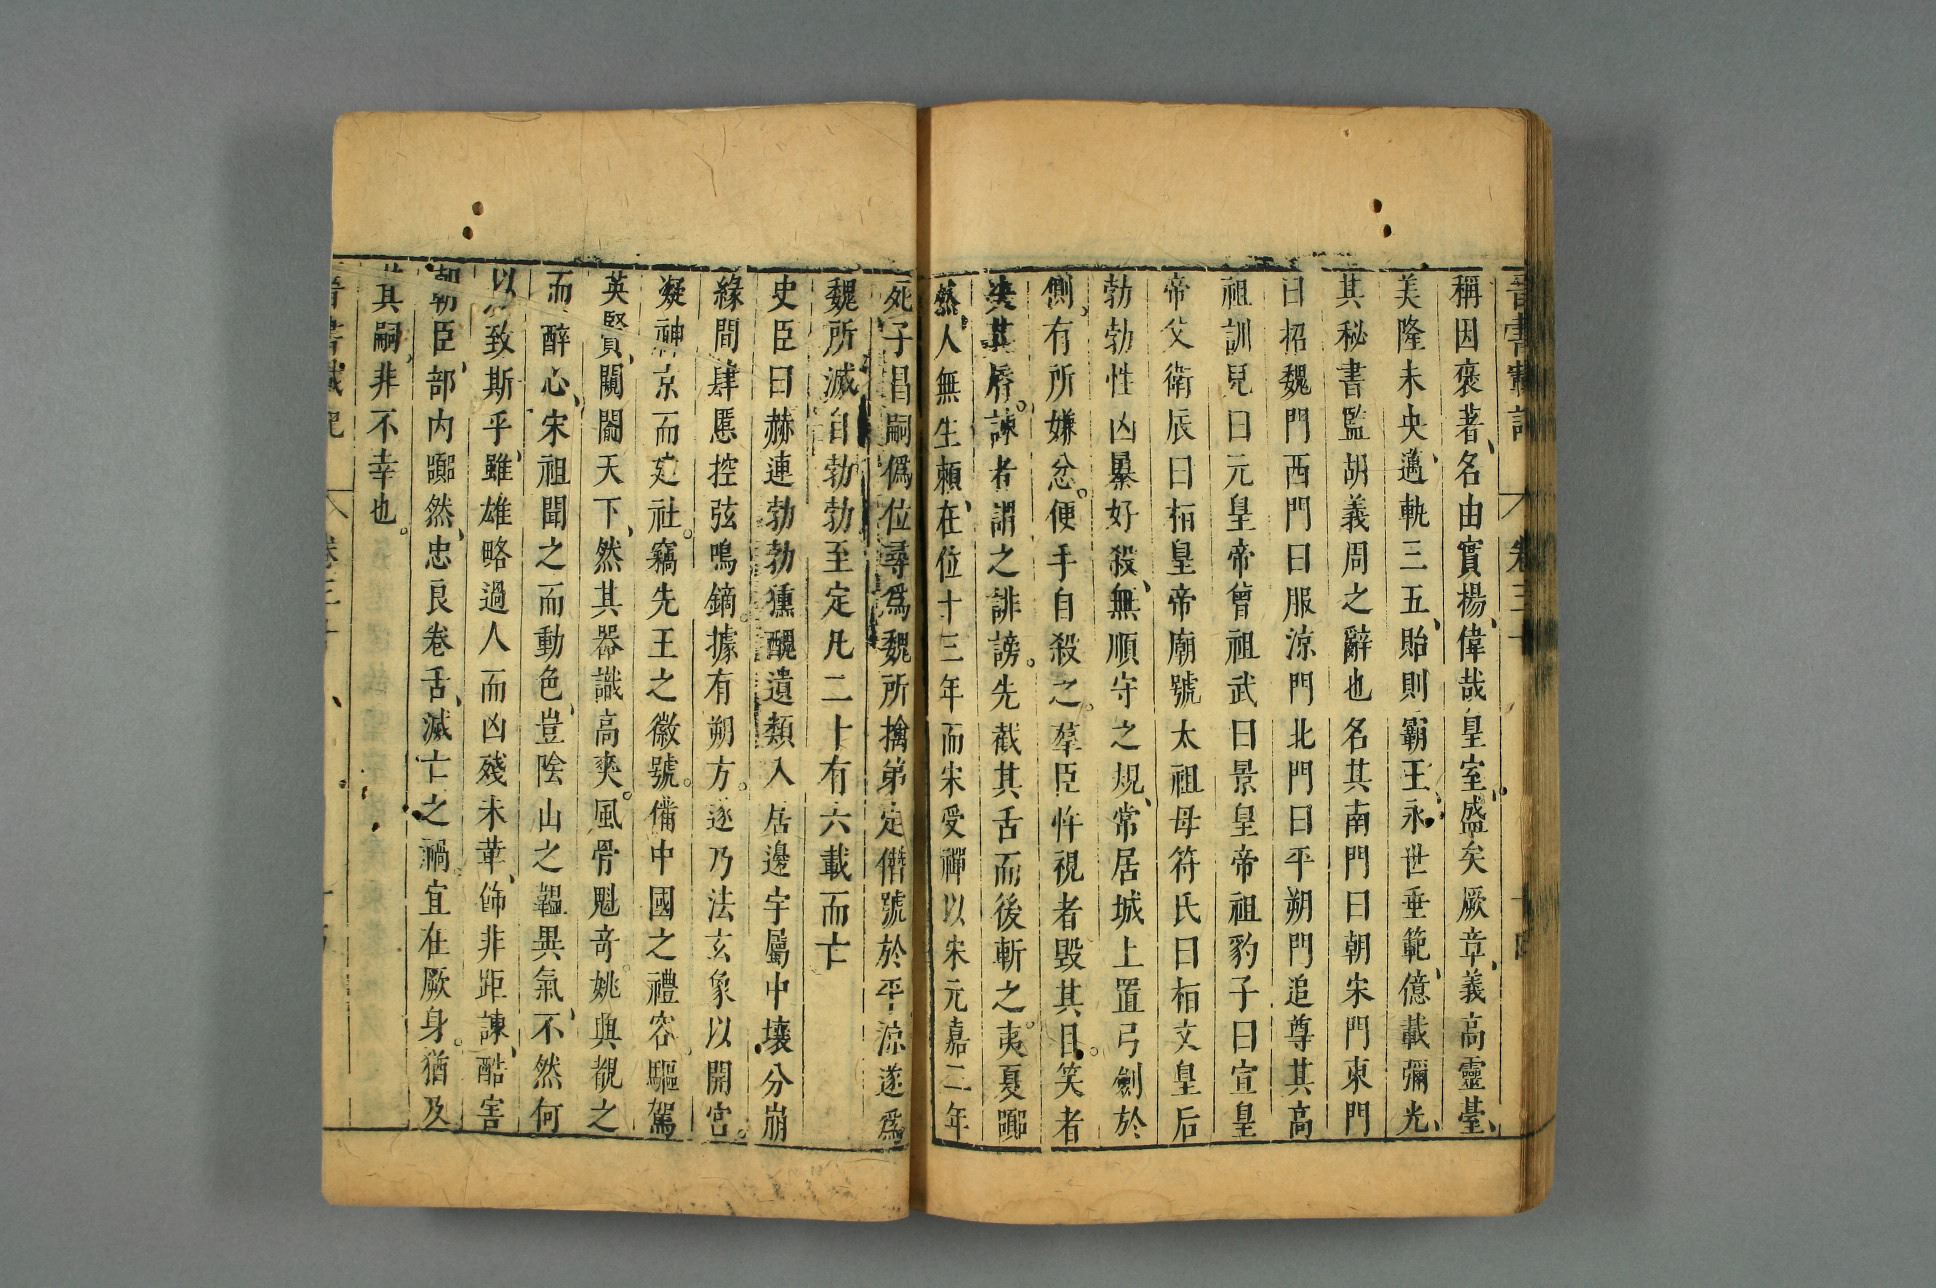 晉書載記 卷三十 十四
稱因褒著名由實揚偉哉皇室盛矣厥章義高靈臺
美隆未央邁軌三五貽則霸王永世垂範億載彌光
其秘書監胡義周之辭也名其南門曰朝宋門東門
曰招魏門西門曰服涼門北門曰平朔門追尊其高
祖訓兒曰元皇帝曾祖武曰景皇帝祖豹子曰宣皇
帝父衛辰曰桓皇帝廟號太祖母符氏曰桓文皇后
勃勃性凶暴好殺無順守之規常居城上置弓劍於
側有所嫌忿便手自殺之羣臣忤視者毀其目笑者
決其脣諫者謂之誹謗先截其舌而後斬之夷夏嚻
然人無生賴在位十三年而宋受禪以宋元嘉二年
死子昌嗣僞位尋爲魏所擒弟定僭號於平涼遂爲
魏所滅自勃勃至定凡二十有六載而亡
史臣曰赫連勃勃獯醜遺類入居邊宇屬中壤分崩
緣間肆慝控弦鳴鏑據有朔方遂乃法玄象以開宮
擬神京而建社竊先王之徽號備中國之禮容驅駕
英賢闚闟天下然其器識高爽風骨魁奇姚興覩之
而醉心宋祖聞之而動色豈陰山之韞異氣不然何
以致斯乎雖雄略過人而凶殘未革飾非距諫酷害
朝臣部内嚻然忠良卷舌滅亡之禍宜在厥身猶及
其嗣非不幸也
晉書載記 卷三十